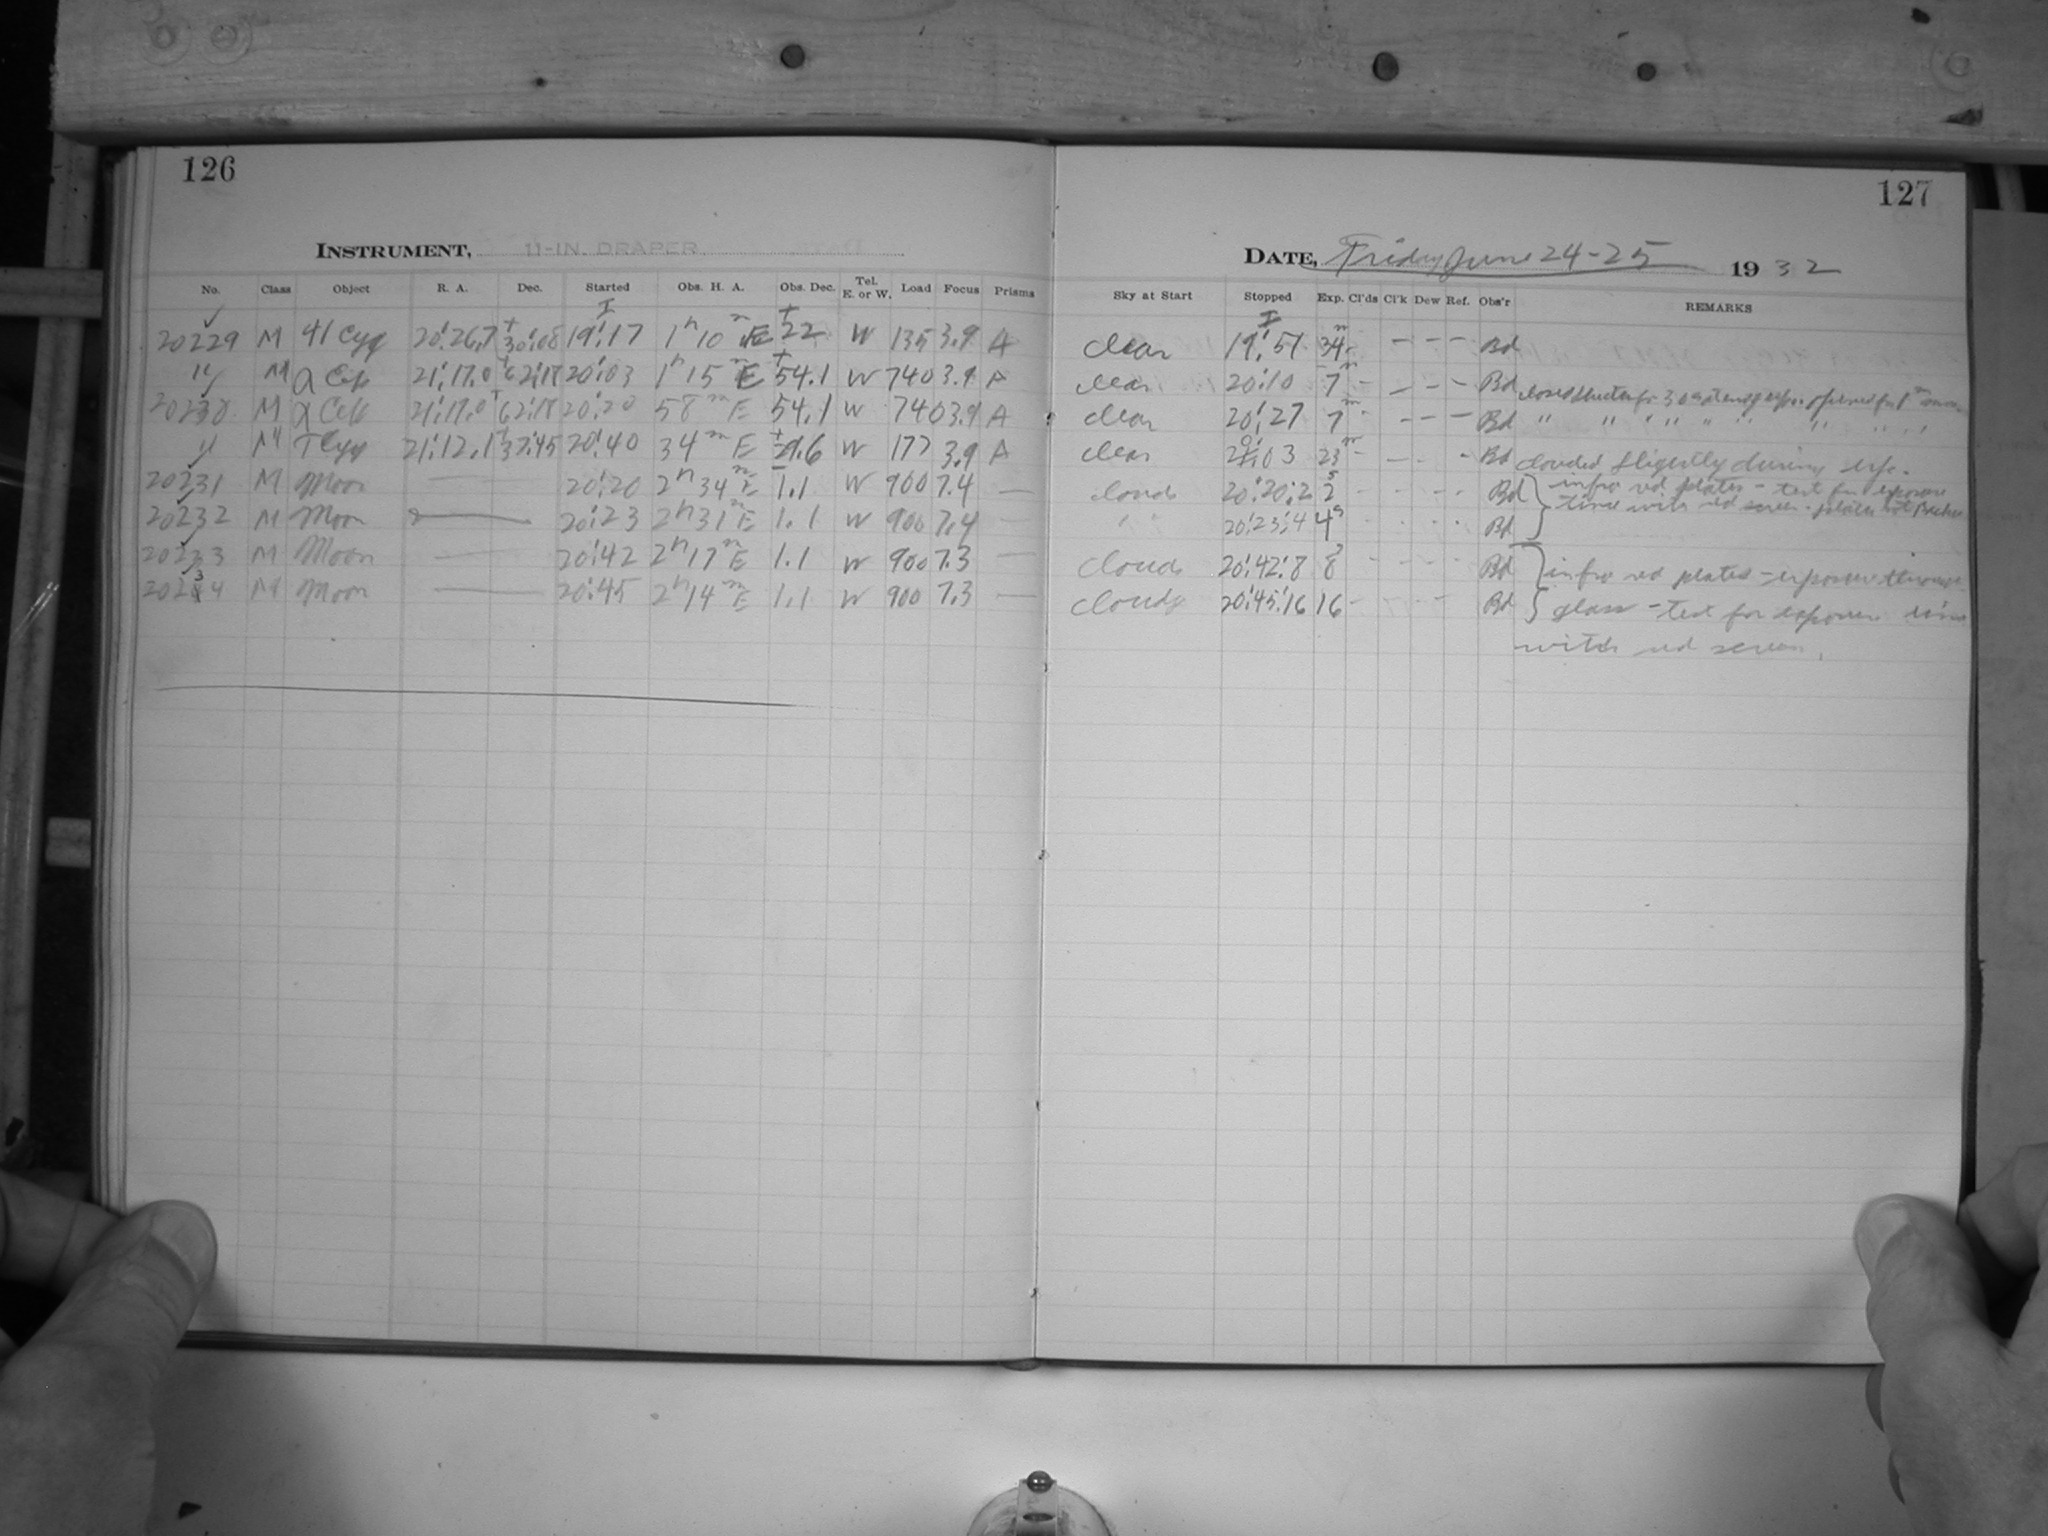 126
127
INSTRUMENT, 11-IN. DRAPER
DATE, Friday June 24-25 1932
No. Class Object R. A. Dec. Started Obs. H. A. Obs. Dec. Tel. E. or W. Load Focus Prisms Sky at Start Stopped Exp. Cl'ds Cl'k Dew Ref. Obs'r REMARKS
20229 M 41 Cyg 20:26.7 +30:08 19:17 1h 10m E +22 W 135 3.9 A clear 19:51 34m - - - - Bd
" M α Cep 21:17.0 +62:17 20:03 1h 15m E +54.1 W 740 3.9 A clear 20:10 7m - - - - Bd closed shutter for 30s
20230 M α Cep 21:17.0 +62:18 20:20 58m E 54.1 W 740 3.9 A clear 20:27 7m - - - Bd " " " " " " " " "
" M τ Cyg 21:12.1 +37:45 20:40 34m E +29.6 W 177 3.9 A clear 21:03 23m - - - - Bd clouded slightly during exp.
20231 M Moon — 20:20 2h 34m E -1.1 W 900 7.4 — clouds 20:20:2 2s - - - - Bd infra red plates - test for exposure
20232 M Moon — 20:23 2h 31m E 1.1 W 900 7.4 — " 20:23:4 4s Bd time with red screen. plates not
20233 M Moon — 20:42 2h 17m E 1.1 W 900 7.3 — clouds 20:42:8 8s - - - - Bd infra red plates - exposure through
20234 M Moon — 20:45 2h 14m E 1.1 W 900 7.3 — cloudy 20:45:16 16 - - - - Bd glass - test for exposure time
with red screen.